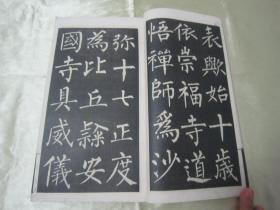 表歟始十歲
依崇福寺道
悟禪師爲沙
弥十七正度
為比丘隸安
國寺具威儀